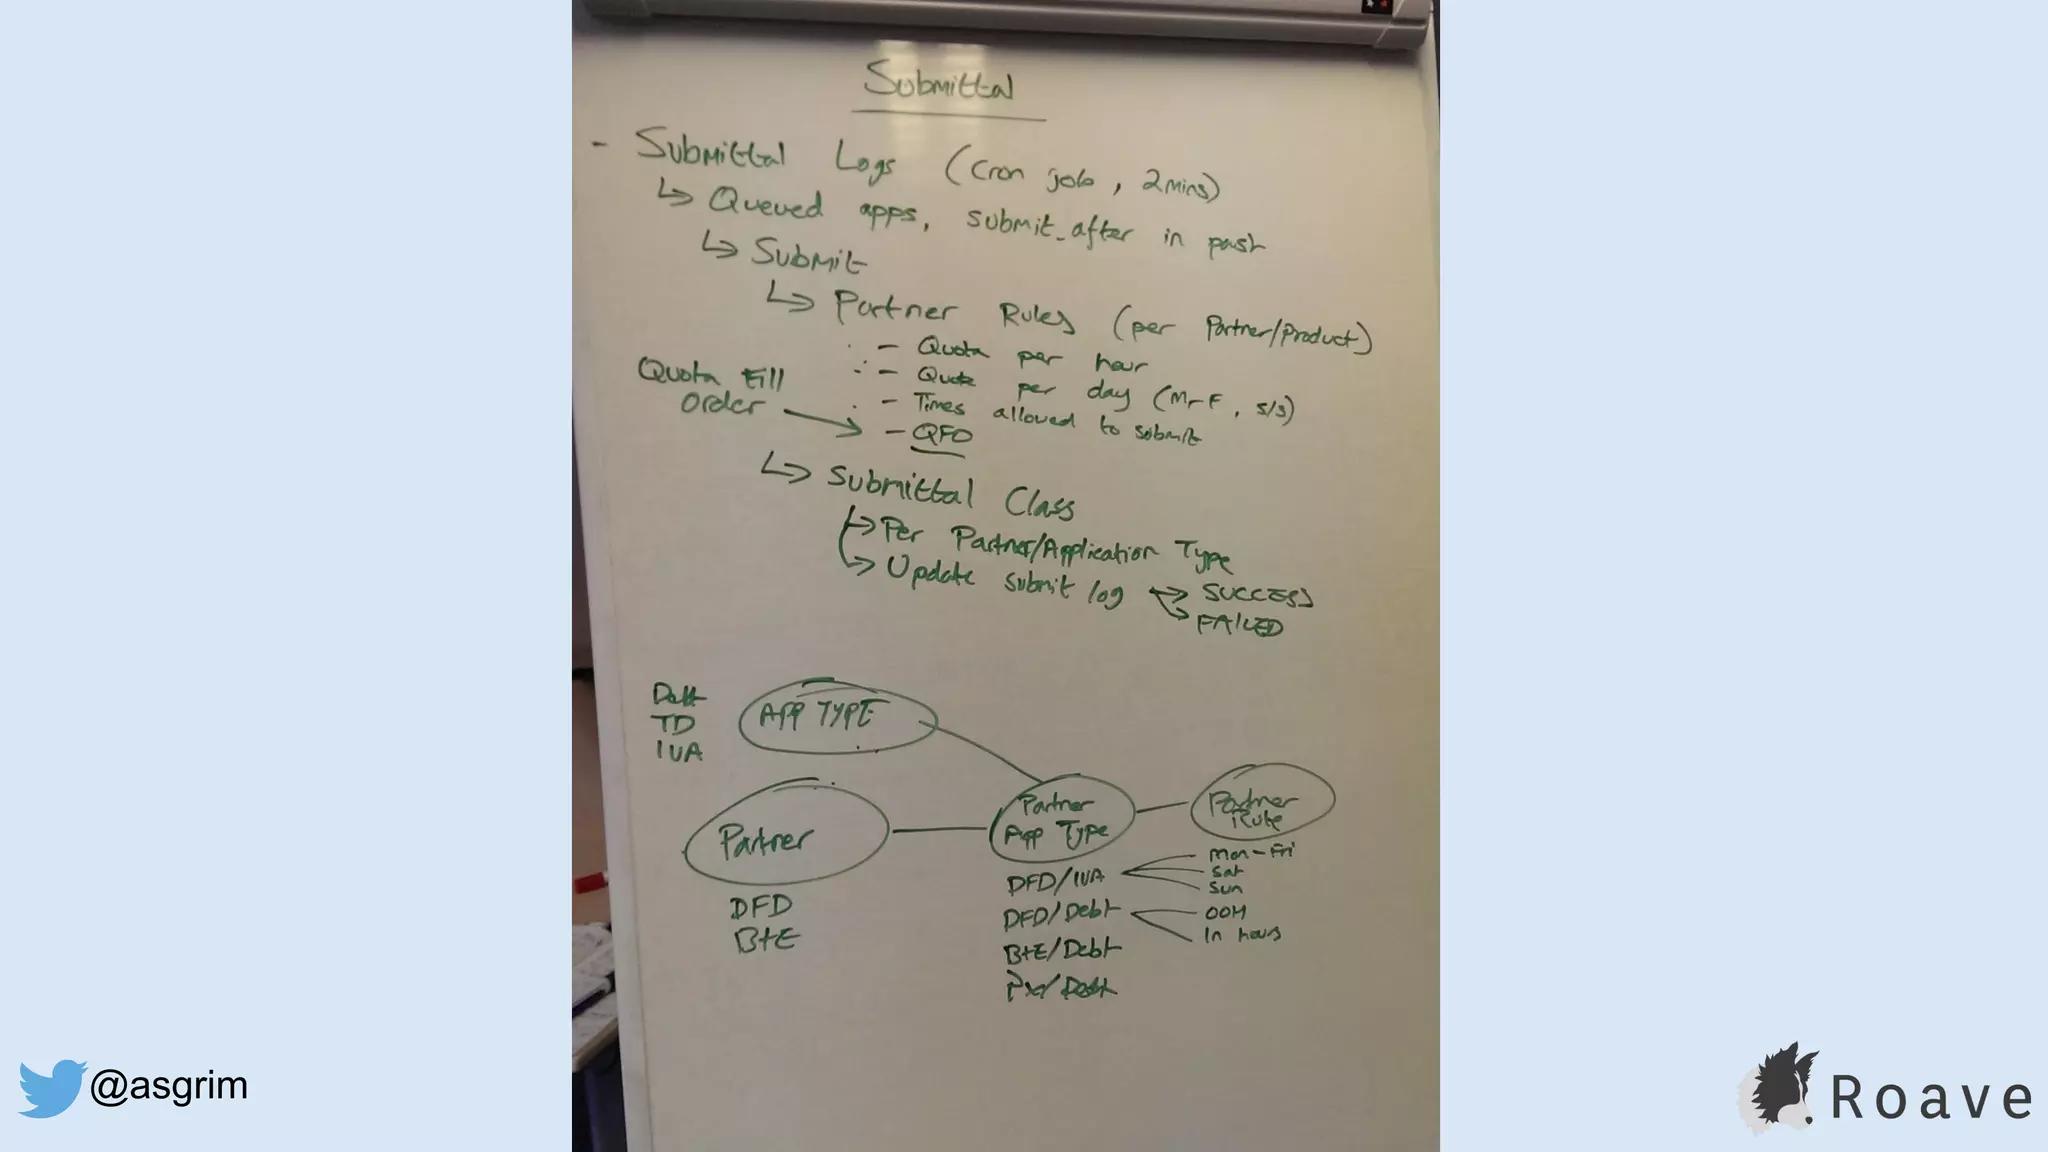 Submittal
- Submittal Logs (cron job, 2mins)
↳ Queued apps, submit_after in past
↳ Submit
↳ Partner Rules (per Partner/Product)
- Quota per hour
- Quota per day (M-F, S/S)
- Times allowed to submit
Quota Fill
Order
- QFO
↳ Submittal Class
↳ Per Partner/Application Type
↳ Update submit log → SUCCESS
→ FAILED
Debt
TD
IVA
APP TYPE
Partner
App Type
Partner
Rule
Partner
DFD
B+E
DFD/IVA
DFD/Debt
B+E/Debt
Mon-Fri
Sat
Sun
OOH
In hours
/Debt
@asgrim
Roave